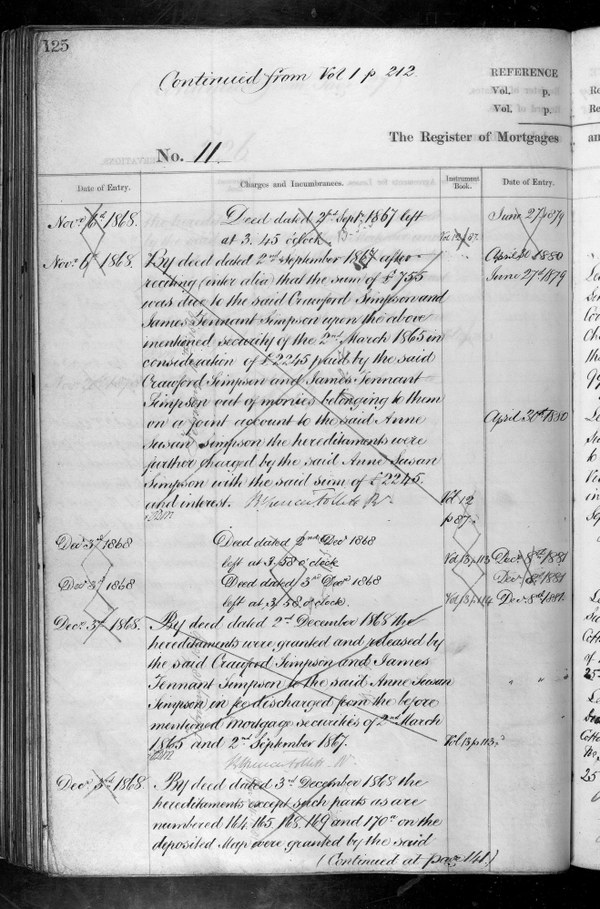 125
Continued from Vol 1 p 212.
REFERENCE
Vol. p.
Vol. p.
The Register of Mortgages
No. 11
Date of Entry.
Charges and Incumbrances.
Instrument Book.
Date of Entry.
Novr. 6th 1868. Deed dated 2nd Septr. 1867 left June 27th 1879
at 3. 45 o'clock. Vol 12 p 87.
Novr. 6th 1868. By deed dated 2nd September 1867 after April 1880
reciting (inter alia) that the sum of £755 June 27th 1879
was due to the said Crawford Simpson and
James Tennant Simpson upon the above
mentioned security of the 2nd March 1865 in
consideration of £2245 paid by the said
Crawford Simpson and James Tennant
Simpson out of monies belonging to them
on a joint account to the said Anne April 30th 1880
Susan Simpson the hereditaments were
further charged by the said Anne Susan
Simpson with the said sum of £2245.
and interest. Vol 12
p 87.
Decr. 3rd 1868 Deed dated 2nd Decr 1868
left at 3.58 o'clock Vol 13 p. 113 Decr. 8th 1881
Decr 3rd 1868 Deed dated 3rd Decr 1868 Decr 1881
left at 3/58 o'clock. Vol 13 p. 114 Decr 8th 1881
Decr. 3rd 1868. By deed dated 2nd December 1868 the
hereditaments were granted and released by
the said Crawford Simpson and James
Tennant Simpson to the said Anne Susan
Simpson in fee discharged from the before
mentioned mortgage securities of 2nd March
1865 and 2nd September 1867. Vol 13 p. 113.
Decr. 3rd 1868. By deed dated 3rd December 1868 the
hereditaments except such parts as are
numbered 164. 165. 168. 169 and 170a on the
deposited Map were granted by the said
(Continued at page 141)